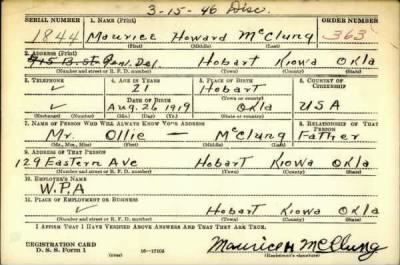 3-15-46 Disc.
SERIAL NUMBER 1. Name (Print) ORDER NUMBER
1844 Maurice Howard McClung 363
(First) (Middle) (Last)
2. Address (Print)
915 B. St. Gen. Del. Hobart Kiowa Okla
(Number and street or R. F. D. number) (Town) (County) (State)
3. Telephone 4. Age in Years 5. Place of Birth 6. Country of Citizenship
✓ 21 Hobart
Date of Birth (Town or county)
✓ Aug. 26 1919 Okla USA
(Mo.) (Day) (Yr.) (State or country)
7. Name of Person Who Will Always Know Your Address 8. Relationship of That Person
Mr. Ollie — McClung Father
(Mr., Mrs., Miss) (First) (Middle) (Last)
9. Address of That Person
129 Eastern Ave Hobart Kiowa Okla
(Number and street or R. F. D. number) (Town) (County) (State)
10. Employer's Name
W.P.A
11. Place of Employment or Business
✓ Hobart Kiowa Okla
(Number and street or R. F. D. number) (Town) (County) (State)
I Affirm That I Have Verified Above Answers and That They Are True.
REGISTRATION CARD
D. S. S. Form 1 (over) 16—17105 Maurice H McClung
(Registrant's signature)